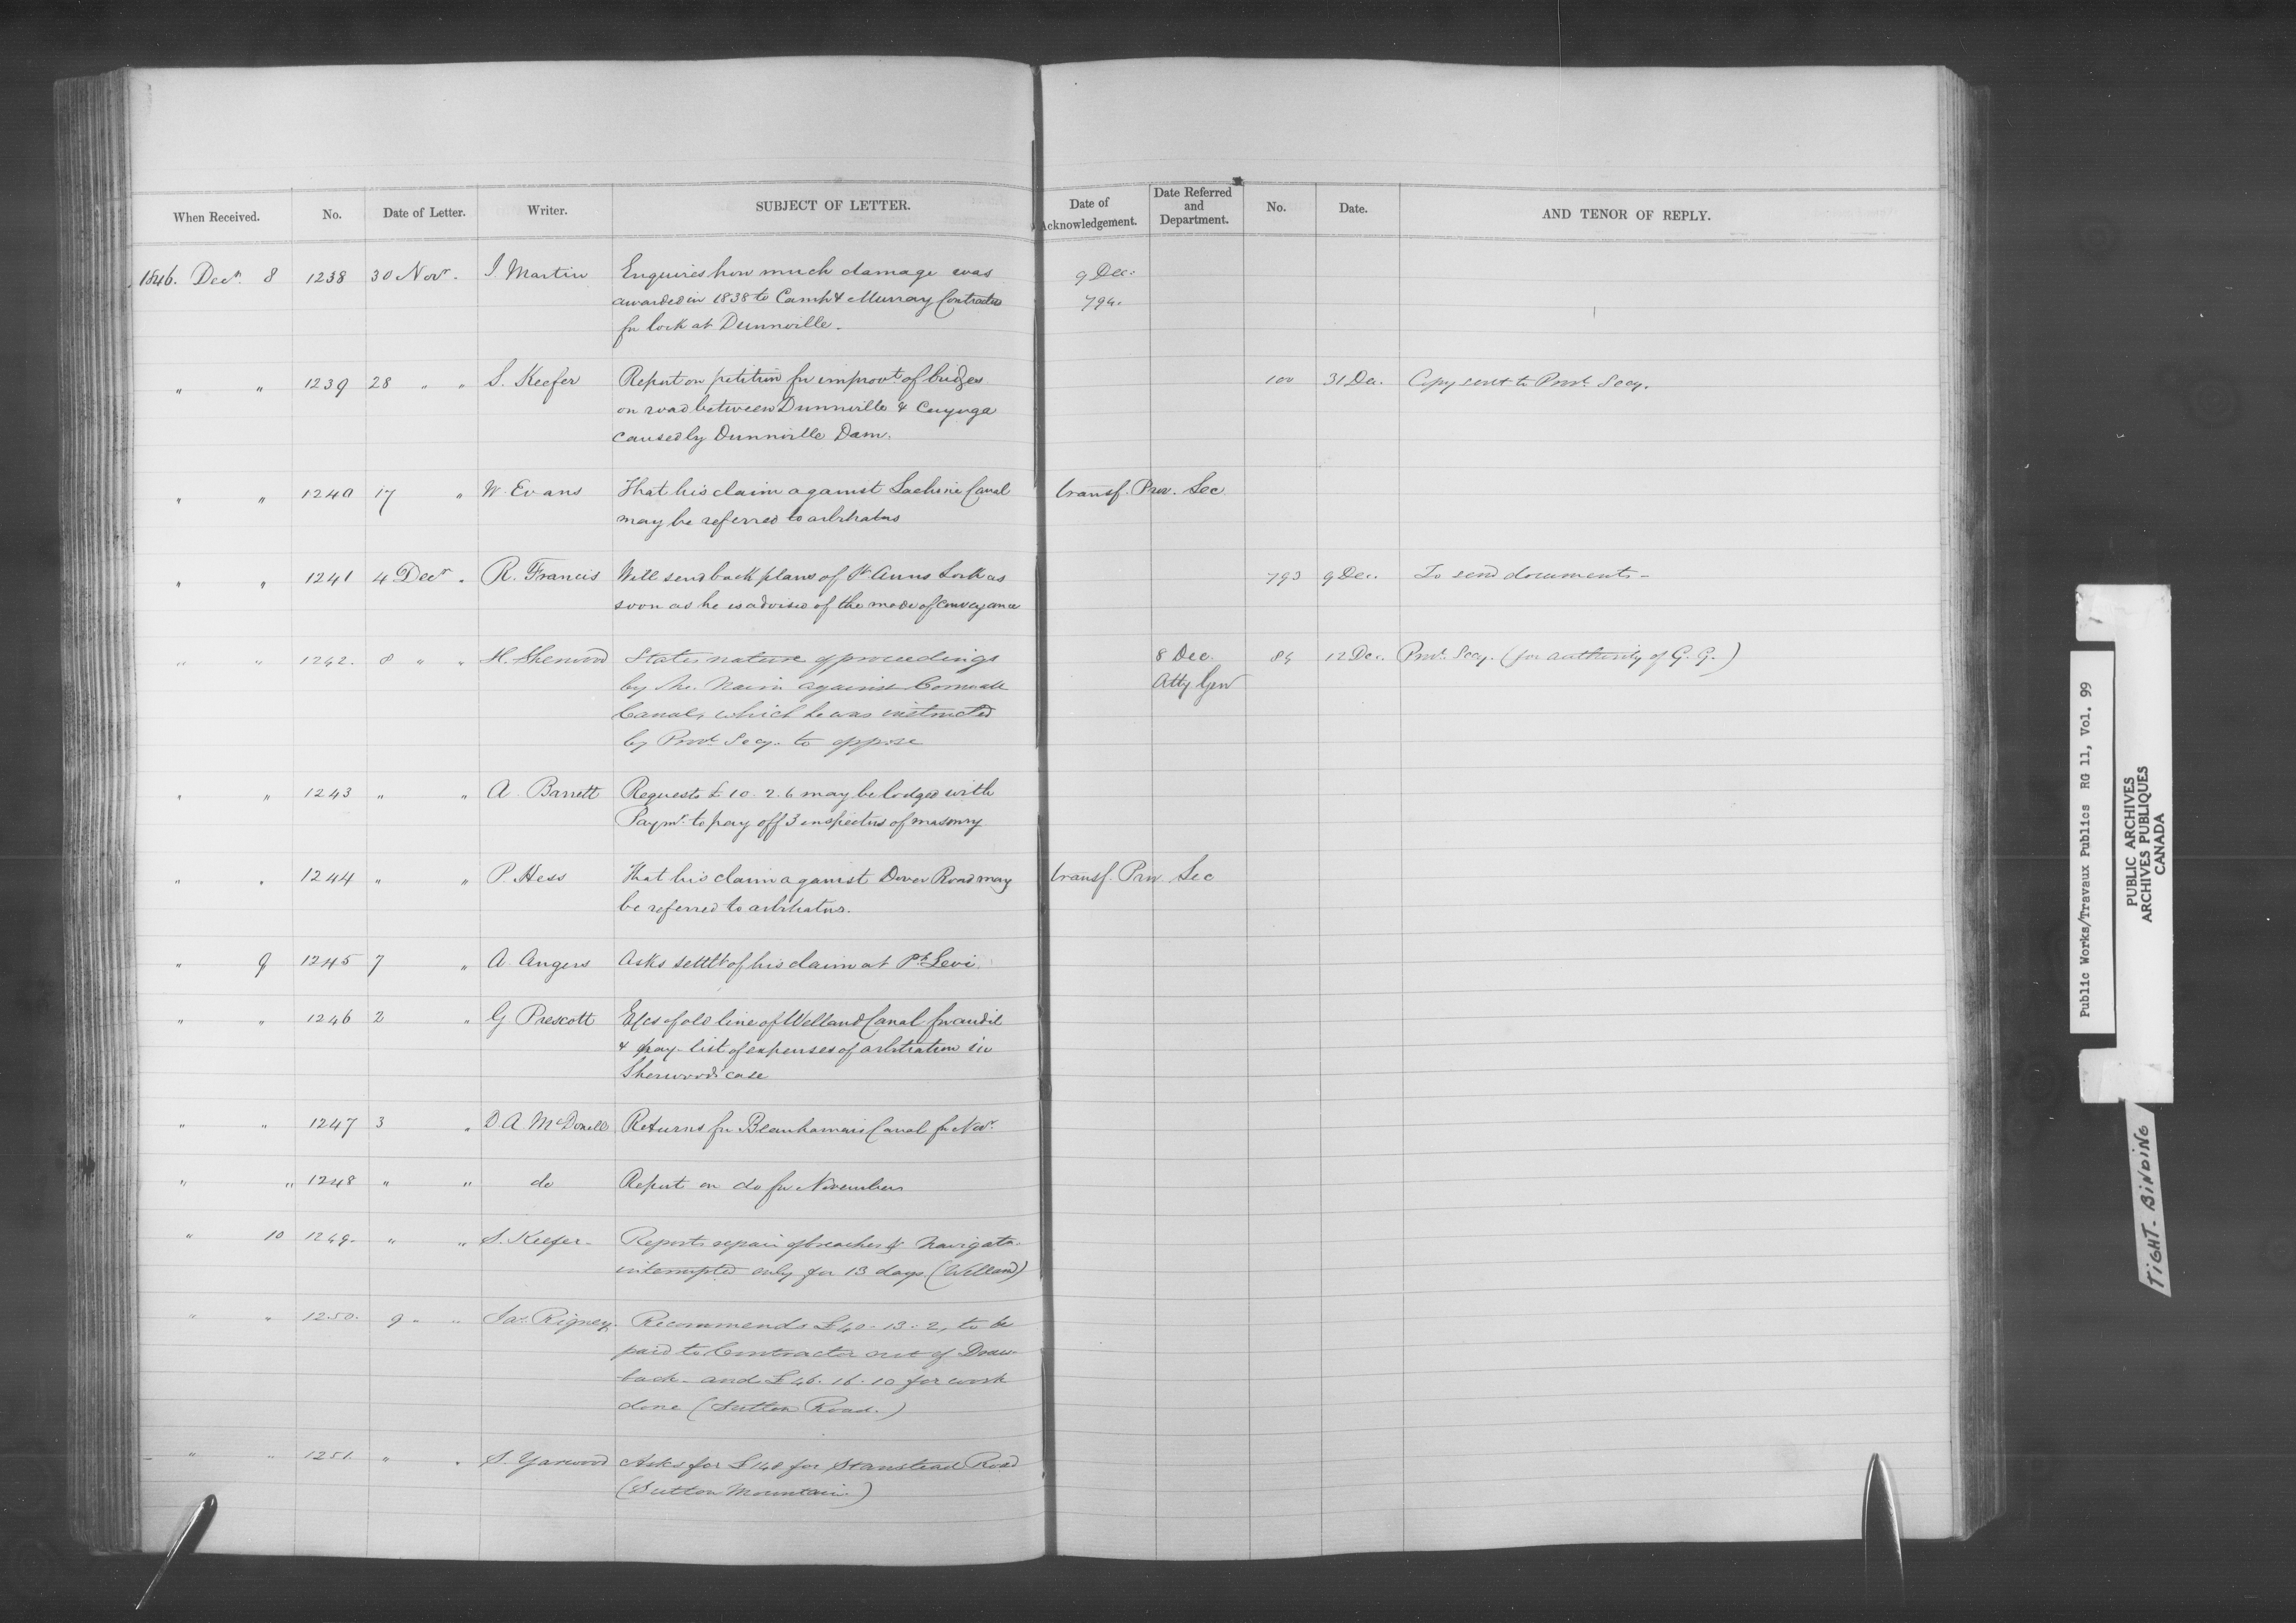 When Received. No. Date of Letter. Writer. SUBJECT OF LETTER. Date of Acknowledgement. Date Referred and Department. No. Date. AND TENOR OF REPLY.
1846. Decr. 8 1238 30 Novr. J. Martin Enquires how much damage was 9 Dec.
awarded in 1838 to Camp & Murray Contractrs 794.
for lock at Dunnville.
" " 1239 28 " " S. Keefer Report on petition for improvt. of bridges 100 31 Dec. Copy sent to Provl. Secy.
on road between Dunnville & Cayuga
caused by Dunnville Dam.
" " 1240 17 " W. Evans That his claim against Lachine Canal transf. Prov. Sec
may be referred to arbitrators
" " 1241 4 Decr. " R. Francis Will send back plans of St. Anns Lock as 793 9 Dec. To send documents-
soon as he is advised of the mode of conveyance
" " 1242. 8 " " H. Sherwood States nature of proceedings 8 Dec. 84 12 Dec. Provl. Secy. (for authority of G. G.)
by Mc. Nairn against Cornwall Atty Genl
Canal, which he was instructed
by Provl. Secy. to oppose
" " 1243 " " A. Barrett Requests £10. 2. 6 may be lodged with
Paymr. to pay off 3 inspectors of masonry
" " 1244 " " P. Hess That his claim against Dover Road may transf. Prov Sec
be referred to arbitrators.
" 9 1245 7 " A. Angers Asks settlt of his claim at Pt. Levi
" " 1246 2 " G. Prescott E/cs of old line of Welland Canal for audit
& pay-list of expenses of arbitration in
Sherwoods case
" " 1247 3 " D A McDonell Returns for Beauharnois Canal for Novr.
" " 1248 " " do Report on do for November
" 10 1249. " " S. Keefer- Reports repair of breaches & Navigatn.
interrupted only for 13 days (Welland)
" " 1250. 9 " " Jas. Rigney. Recommends £40-13-2, to be
paid to Contractor out of Draw-
back- and £46. 16. 10 for work
done (Sutton Road.)
" " 1251. " " S. Yarwood Asks for £148 for Stanstead Road
(Sutton Mountain.)
Public Works/Travaux Publics RG 11, Vol. 99
PUBLIC ARCHIVES
ARCHIVES PUBLIQUES
CANADA
TIGHT-BINDING